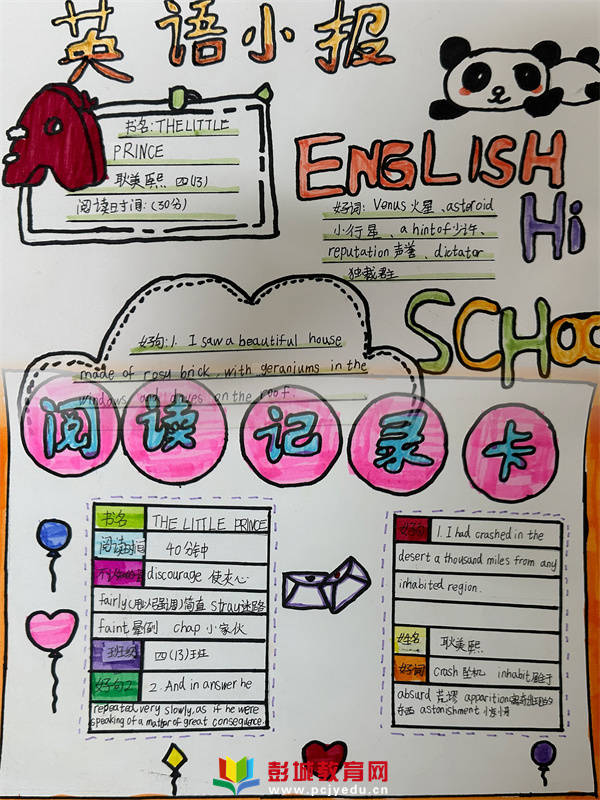 英语小报
书名:THE LITTLE
PRINCE
耿美熙 四(13)
阅读时间:(30分)
ENGLISH
Hi
SCHOO
好词: Venus 火星、asteroid
小行星、a hint of 少许、
reputation 声誉、dictator
独裁君
好句:1. I saw a beautiful house
made of rosy brick, with geraniums in the
windows and doves on the roof.
阅读记录卡
书名 THE LITTLE PRINCE
阅读时间 40分钟
discourage 使灰心
fairly(用以强调)简直 stray迷路
faint晕倒 chap 小家伙
班级 四(13)班
好句2 2. And in answer he
repeated very slowly, as if he were
speaking of a matter of great consequence.
好句 1. I had crashed in the
desert a thousand miles from any
inhabited region.
姓名 耿美熙
好词 crash 坠机 inhabit居住于
absurd 荒谬 apparition
东西 astonishment
彭城教育网
www.pcjyedu.cn